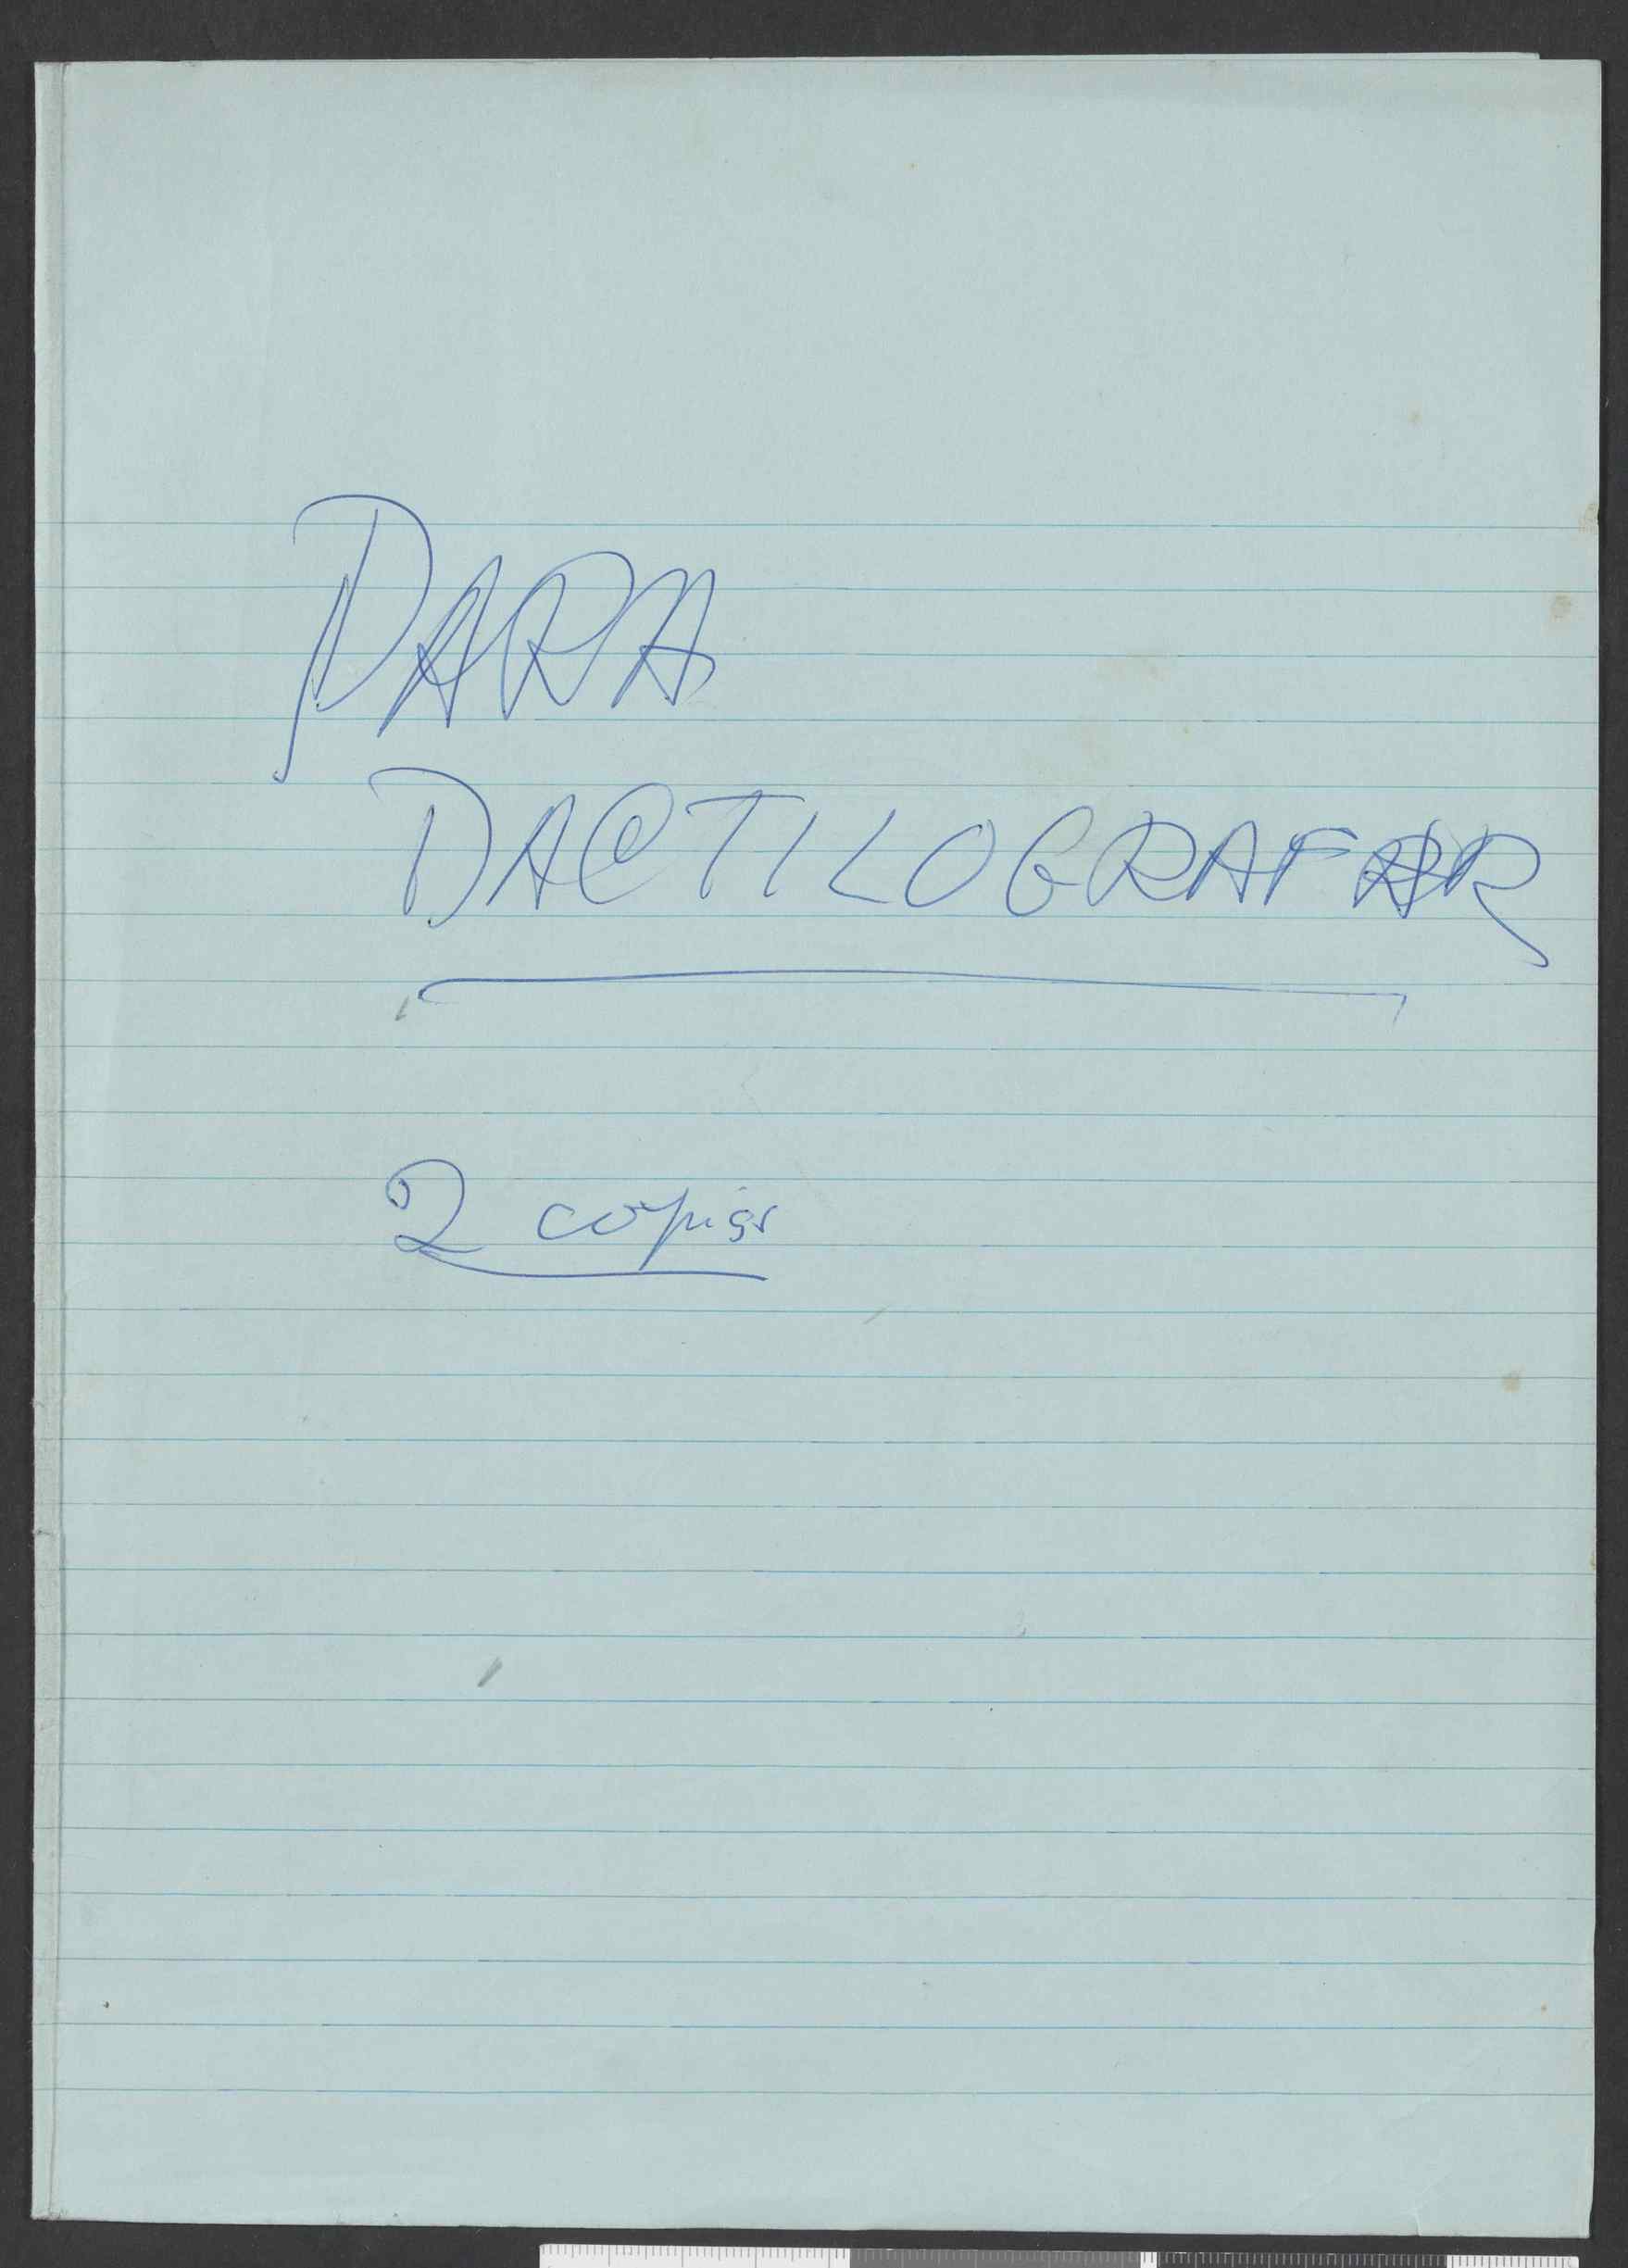 PARA
DACTILOGRAFAR
2 copias